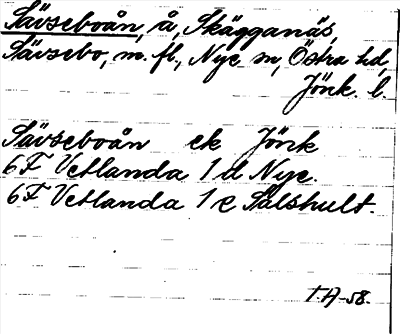 Sävseboån, å, Skägganäs,
Sävsebo, m. fl., Nye sn, Östra hd,
Jönk. l.
Sävseboån ek Jönk
6F Vetlanda 1d Nye.
6F Vetlanda 1e Sälshult.
T.A-58.